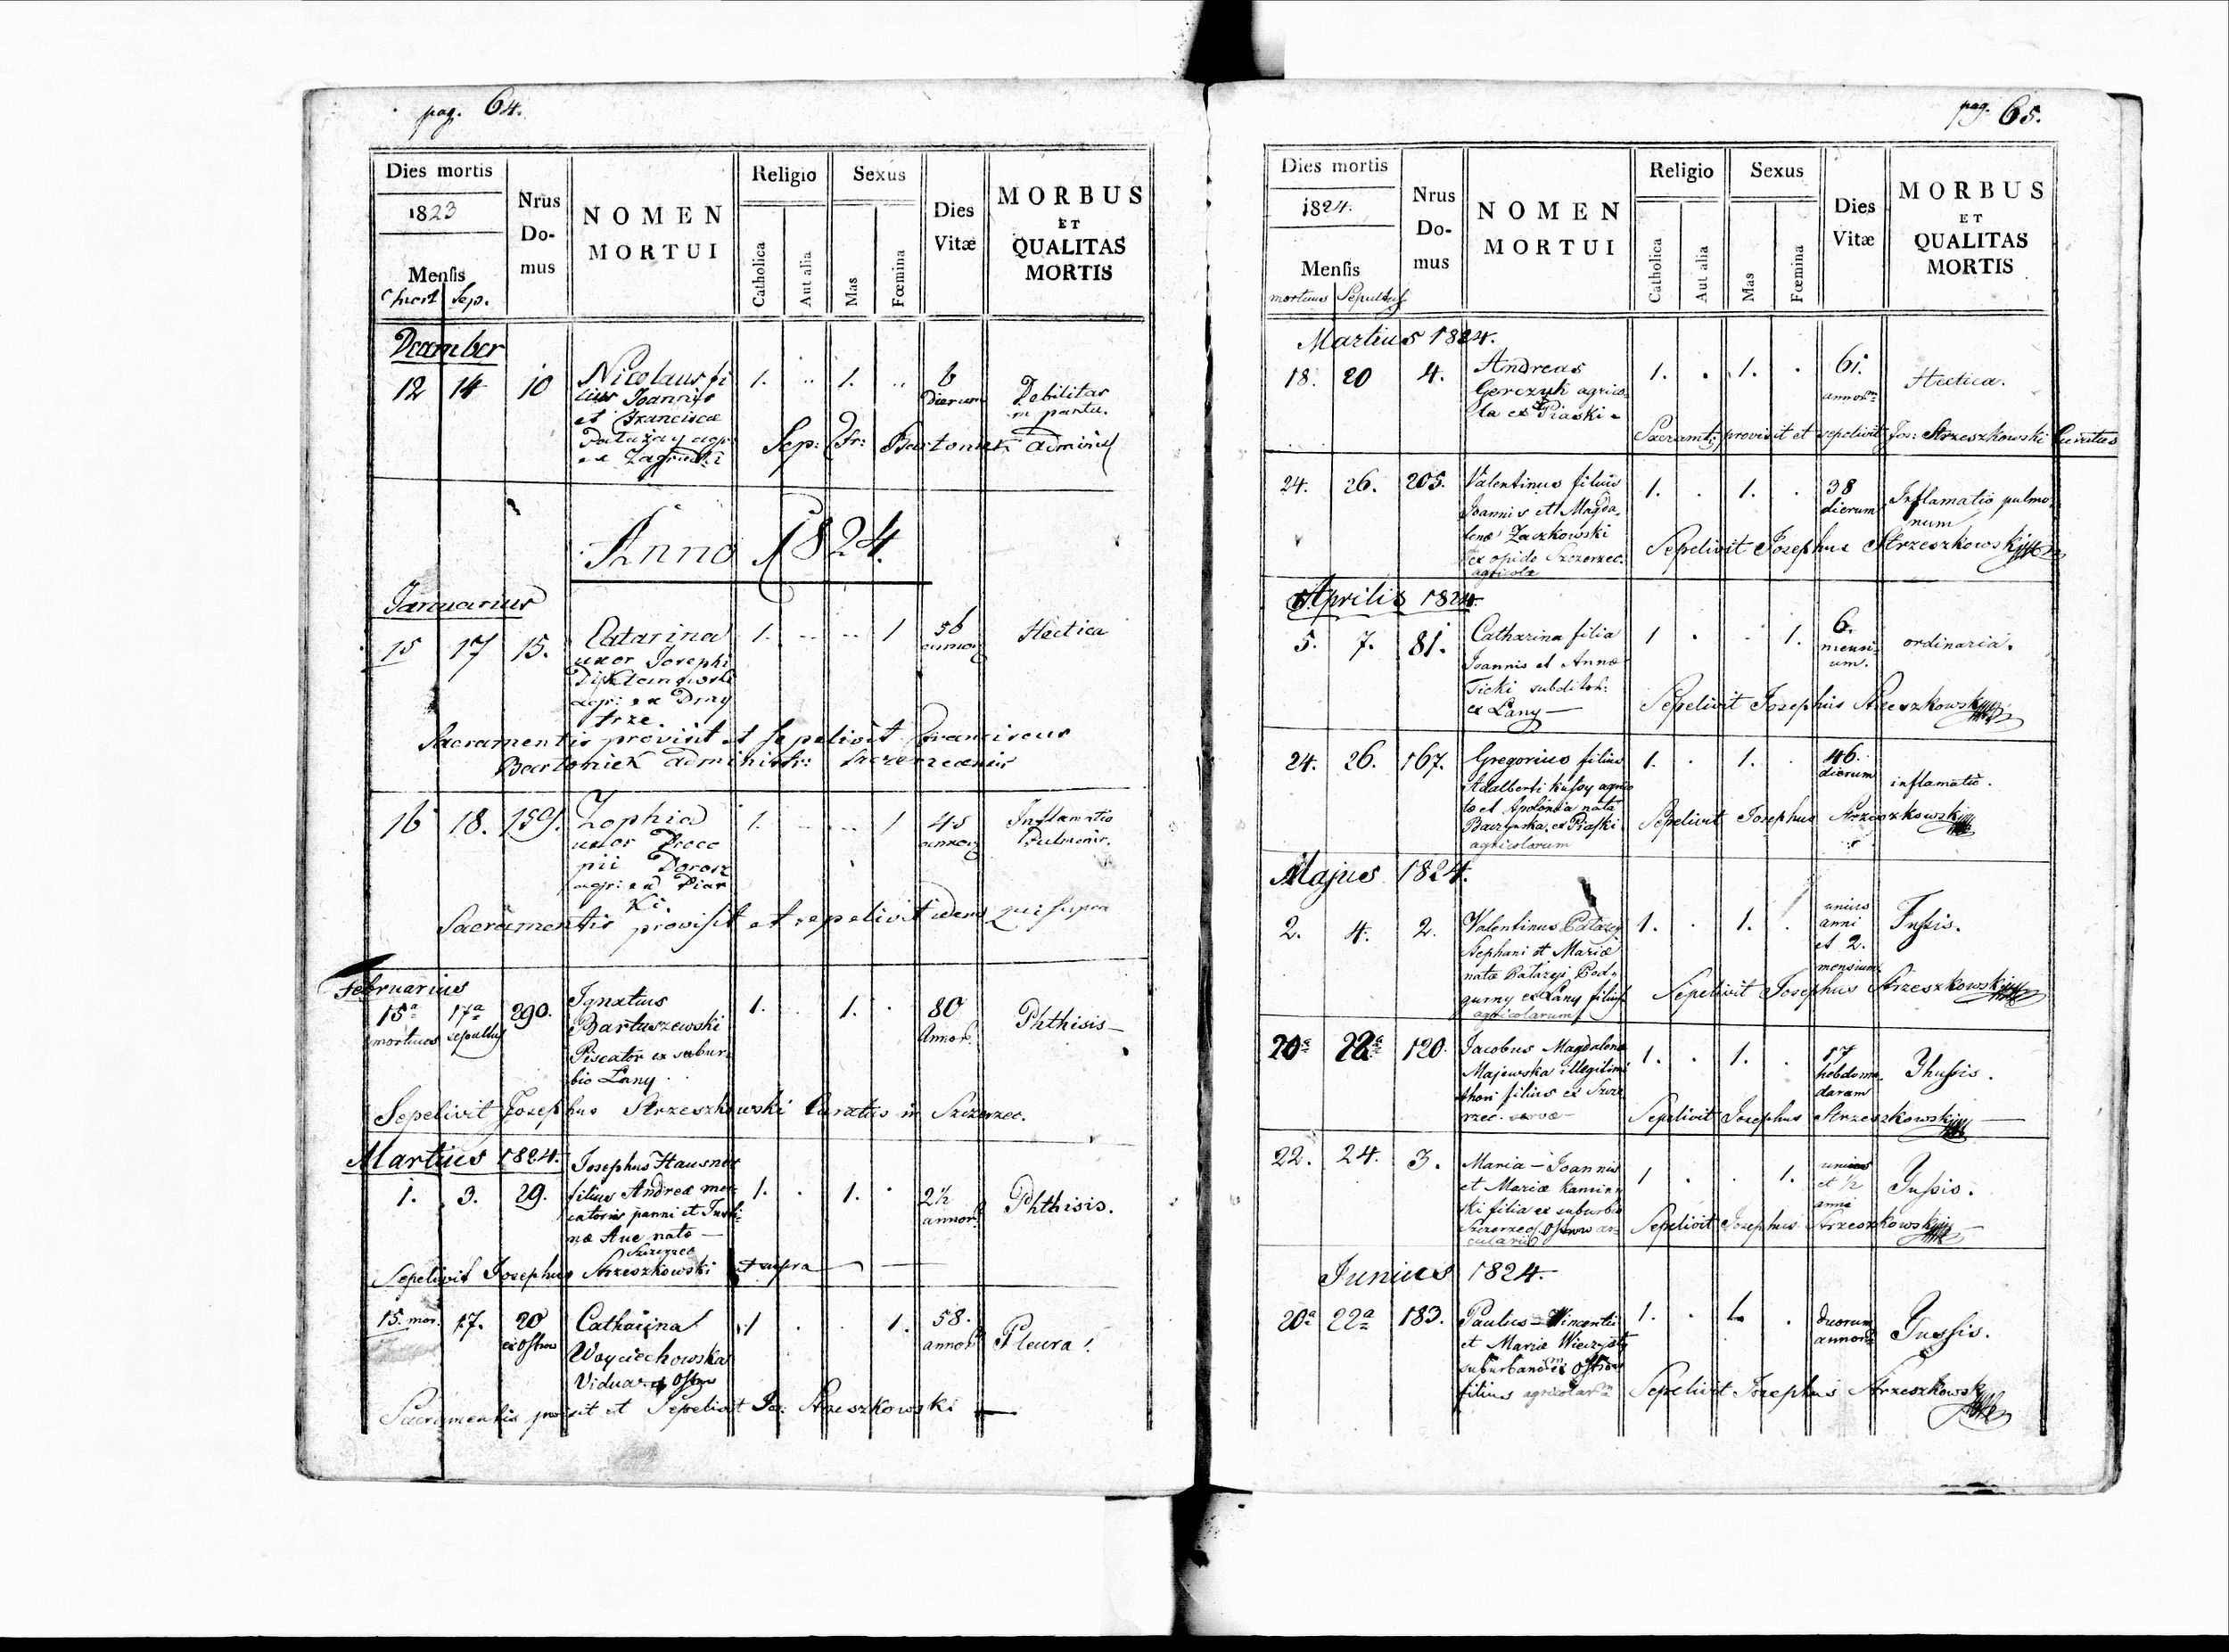 pag. 64.
Dies mortis
1823
Mensis
mort Sep.
Nrus
Do-
mus
NOMEN
MORTUI
Religio
Catholica
Aut alia
Sexus
Mas
Fœmina
Dies
Vitæ
MORBUS
ET
QUALITAS
MORTIS
December
12 14 10 Nicolaus fi 1. .. 1. .. 6
lius Joannis dierum Debilitas
et Francisca in partu.
agr:
ex Zagrudki Sep: Fr: Bartoniek
Anno 1824.
Januarius
15 17 15. Catarina 1. .. .. 1 56 Hectica
uxor Josephi annor
agr: ex Dmy
trze.
Sacramentis provisit et sepelivit Franciscus
Bartoniek administr:
16 18. 159. Zophia 1. .. .. 1 45 Inflamatio
uxor Proco annor Pulmonis.
pii Dorosz
agr: ex Pias
ki.
Sacramentis provisit et sepelivit idem qui supra
Februarius
15a 17a 290. Ignatius 1. . 1. . 80 Phthisis
mortuus sepultus Bartuszewski Annor.
Piscator ex subur
bio Łany.
Sepelivit Josephus Strzeszkowski Curatus in Szczerzec.
Martius 1824. Josephus Hausner
1. 3. 29. filius Andreæ mer 1. . 1. . 2½ Phthisis.
catoris panni et Justi annor.
næ Aue natæ
Szczerzec
Sepelivit Josephus Strzeszkowski ut supra
15. mar. 17. 20 Catharina 1 . . 1. 58. Pleura.
ex Ostrow Woyciechowska annor.
Vidua ex Ostrow
Sacramentis provisit et Sepelivit Jos: Strzeszkowski
pag. 65.
Dies mortis
1824.
Mensis
mortuus Sepultus
Nrus
Do-
mus
NOMEN
MORTUI
Religio
Catholica
Aut alia
Sexus
Mas
Fœmina
Dies
Vitæ
MORBUS
ET
QUALITAS
MORTIS
Martius 1824.
18. 20 4. Andreas 1. . 1. . 61. Hectica.
Gerczyk agrico annorm
la ex Piaski
Sacramtis provisit et sepelivit Jos: Strzeszkowski Curatus
24. 26. 205. Valentinus filius 1. . 1. . 38 Inflamatio pulmo
Joannis et Magda dierum num
lenæ Zaczkowski
ex opido Szczerzec.
agricolæ
Sepelivit Josephus Strzeszkowski
Aprilis 1824.
5. 7. 81. Catharina filia 1 . . 1. 6. ordinaria.
Joannis et Annæ mensi
Ticki subditor: um.
ex Łany
Sepelivit Josephus Strzeszkowski
24. 26. 167. Gregorius filius 1. . 1. . 46. inflamatio.
Adalberti agrico dierum
læ et Apolonia nata
ex Piaski
agricolarum
Sepelivit Josephus Strzeszkowski
Majus 1824.
2. 4. 2. Valentinus 1. . 1. . unius Tussis.
Stephani et Mariæ anni
natæ et 2.
ex Łany filius mensium
agricolarum
Sepelivit Josephus Strzeszkowski
20a 22a 120. Jacobus Magdalena 1. . 1. . 17 Thussis.
Majewska illegitimi hebdoma
thori filius ex Szcze daram
rzec.
Sepelivit Josephus Strzeszkowski
22. 24. 3. Maria – Joannis 1 . . 1. unius Tussis.
et Mariæ Kamin et ½
ski filia ex suburbio anni
Szczerzec Ostrow
Sepelivit Josephus Strzeszkowski
Junius 1824.
20a 22a 183. Paulus – Wincentii 1. . 1. . duorum Tussis.
et Mariæ annor
ex Ostrow
filius agricolar
Sepelivit Josephus Strzeszkowski